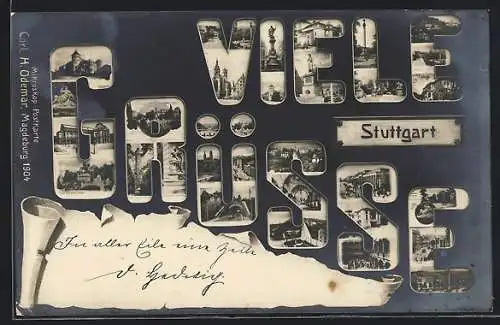 VIELE
GRÜSSE
Stuttgart
Mikroskop-Postkarte
Carl H. Odemar, Magdeburg 1904
In aller Eile eine Zeile
v. Hedwig.